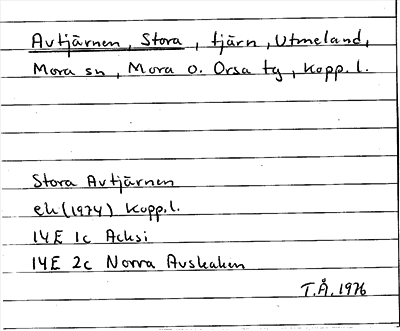 Avtjärnen, Stora, tjärn, Utmeland,
Mora sn, Mora o. Orsa tg, Kopp. l.
Stora Avtjärnen
ek (1974) Kopp. l.
14E 1c Acksi
14E 2c Norra Avskaken
T.Å. 1976